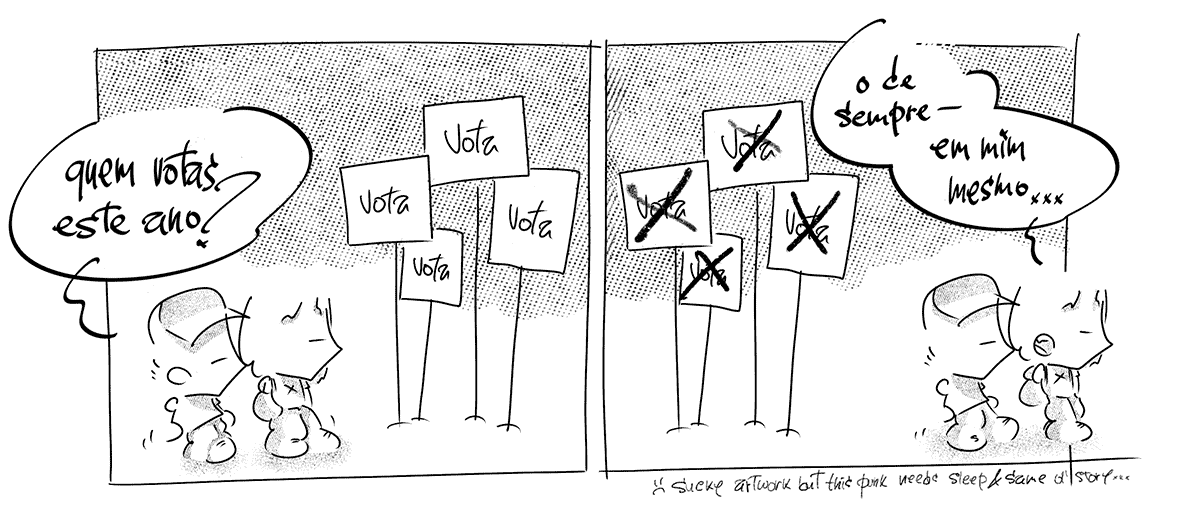 quem votas
este ano?
Vota
Vota
Vota
Vota
o de
sempre—
em mim
mesmo...
Vota
Vota
Vota
Vota
sucky artwork but this punk needs sleep & same ol' story...